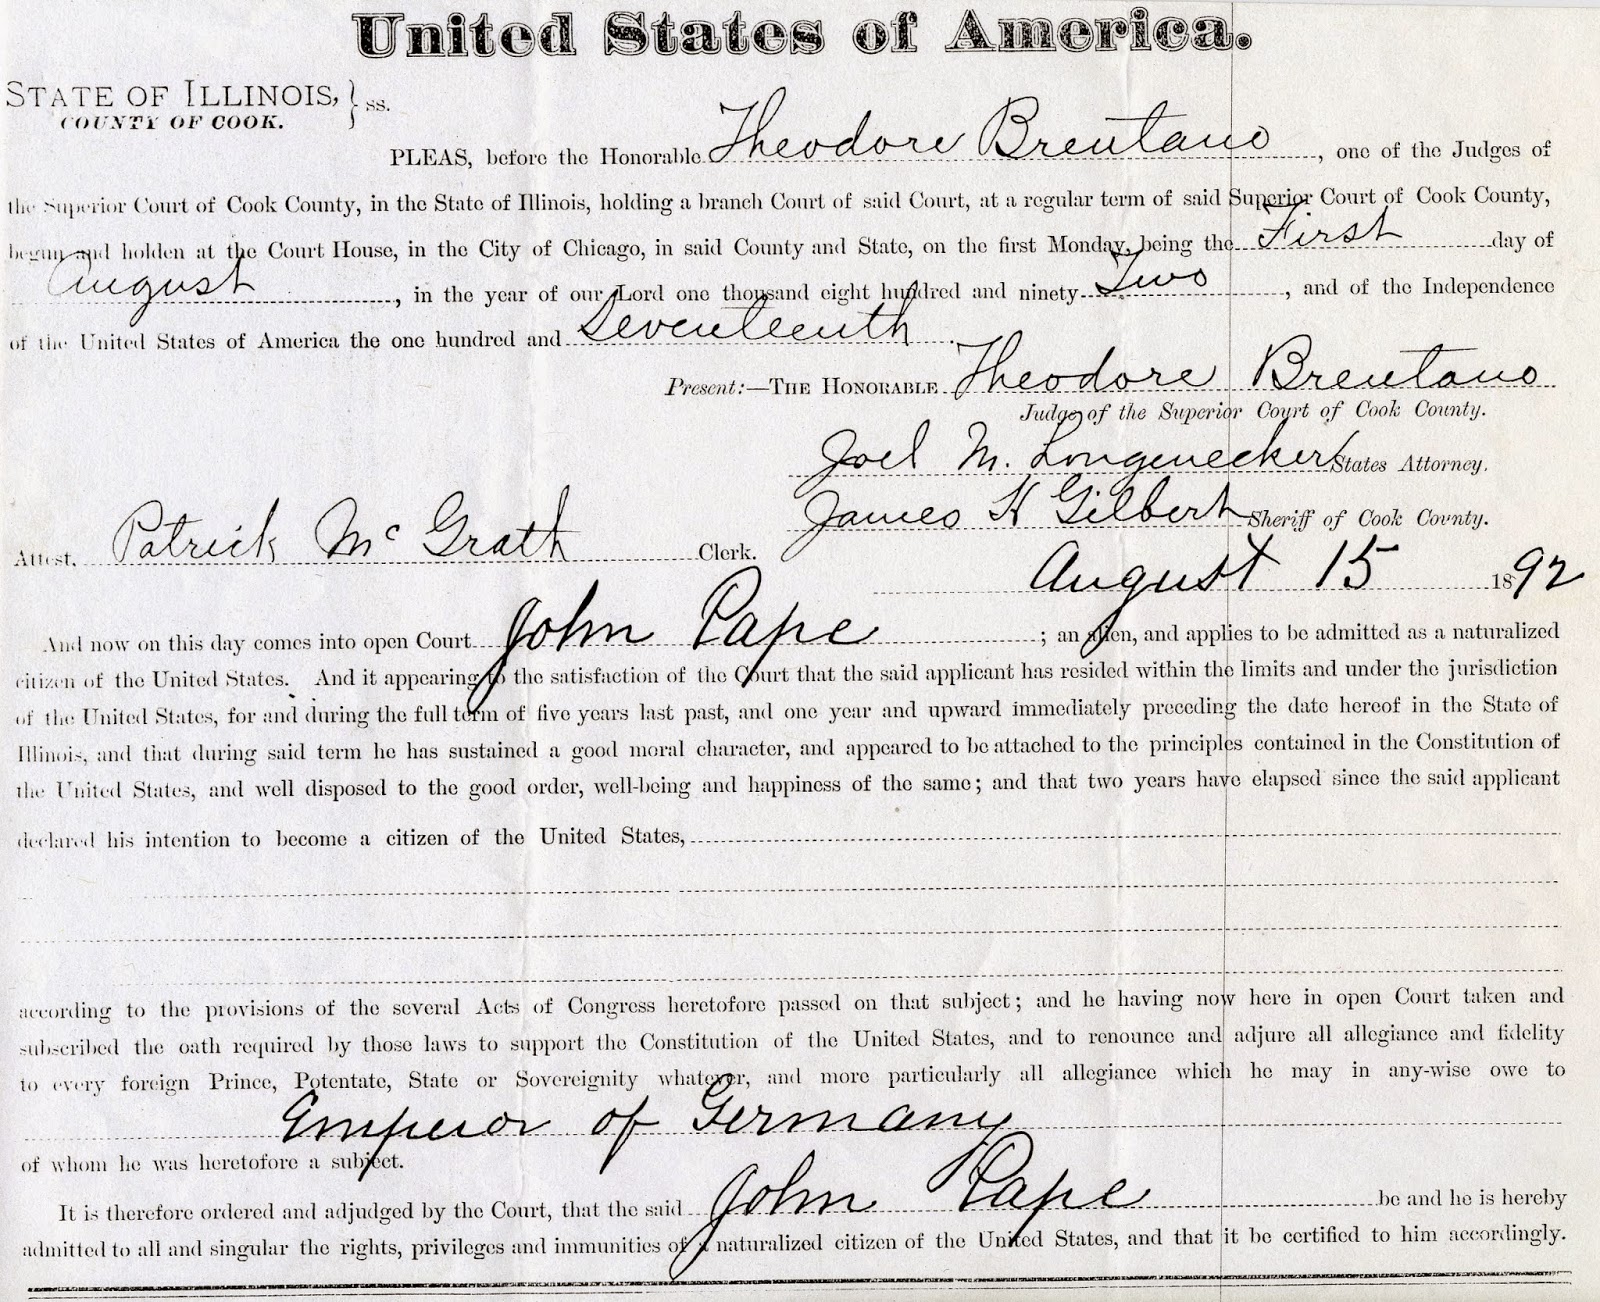 United States of America.
STATE OF ILLINOIS, } ss.
COUNTY OF COOK.
PLEAS, before the Honorable Theodore Brentano, one of the Judges of
the Superior Court of Cook County, in the State of Illinois, holding a branch Court of said Court, at a regular term of said Superior Court of Cook County,
begun and holden at the Court House, in the City of Chicago, in said County and State, on the first Monday, being the First day of
August, in the year of our Lord one thousand eight hundred and ninety Two, and of the Independence
of the United States of America the one hundred and Seventeenth.
Present:—THE HONORABLE Theodore Brentano
Judge of the Superior Court of Cook County.
Joel M. Longenecker States Attorney.
James H Gilbert Sheriff of Cook County.
Attest, Patrick Mc Grath Clerk.
August 15 1892
And now on this day comes into open Court John Pape; an alien, and applies to be admitted as a naturalized
citizen of the United States. And it appearing to the satisfaction of the Court that the said applicant has resided within the limits and under the jurisdiction
of the United States, for and during the full term of five years last past, and one year and upward immediately preceding the date hereof in the State of
Illinois, and that during said term he has sustained a good moral character, and appeared to be attached to the principles contained in the Constitution of
the United States, and well disposed to the good order, well-being and happiness of the same; and that two years have elapsed since the said applicant
declared his intention to become a citizen of the United States,
according to the provisions of the several Acts of Congress heretofore passed on that subject; and he having now here in open Court taken and
subscribed the oath required by those laws to support the Constitution of the United States, and to renounce and adjure all allegiance and fidelity
to every foreign Prince, Potentate, State or Sovereignity whatever, and more particularly all allegiance which he may in any-wise owe to
Emperor of Germany
of whom he was heretofore a subject.
It is therefore ordered and adjudged by the Court, that the said John Pape be and he is hereby
admitted to all and singular the rights, privileges and immunities of a naturalized citizen of the United States, and that it be certified to him accordingly.